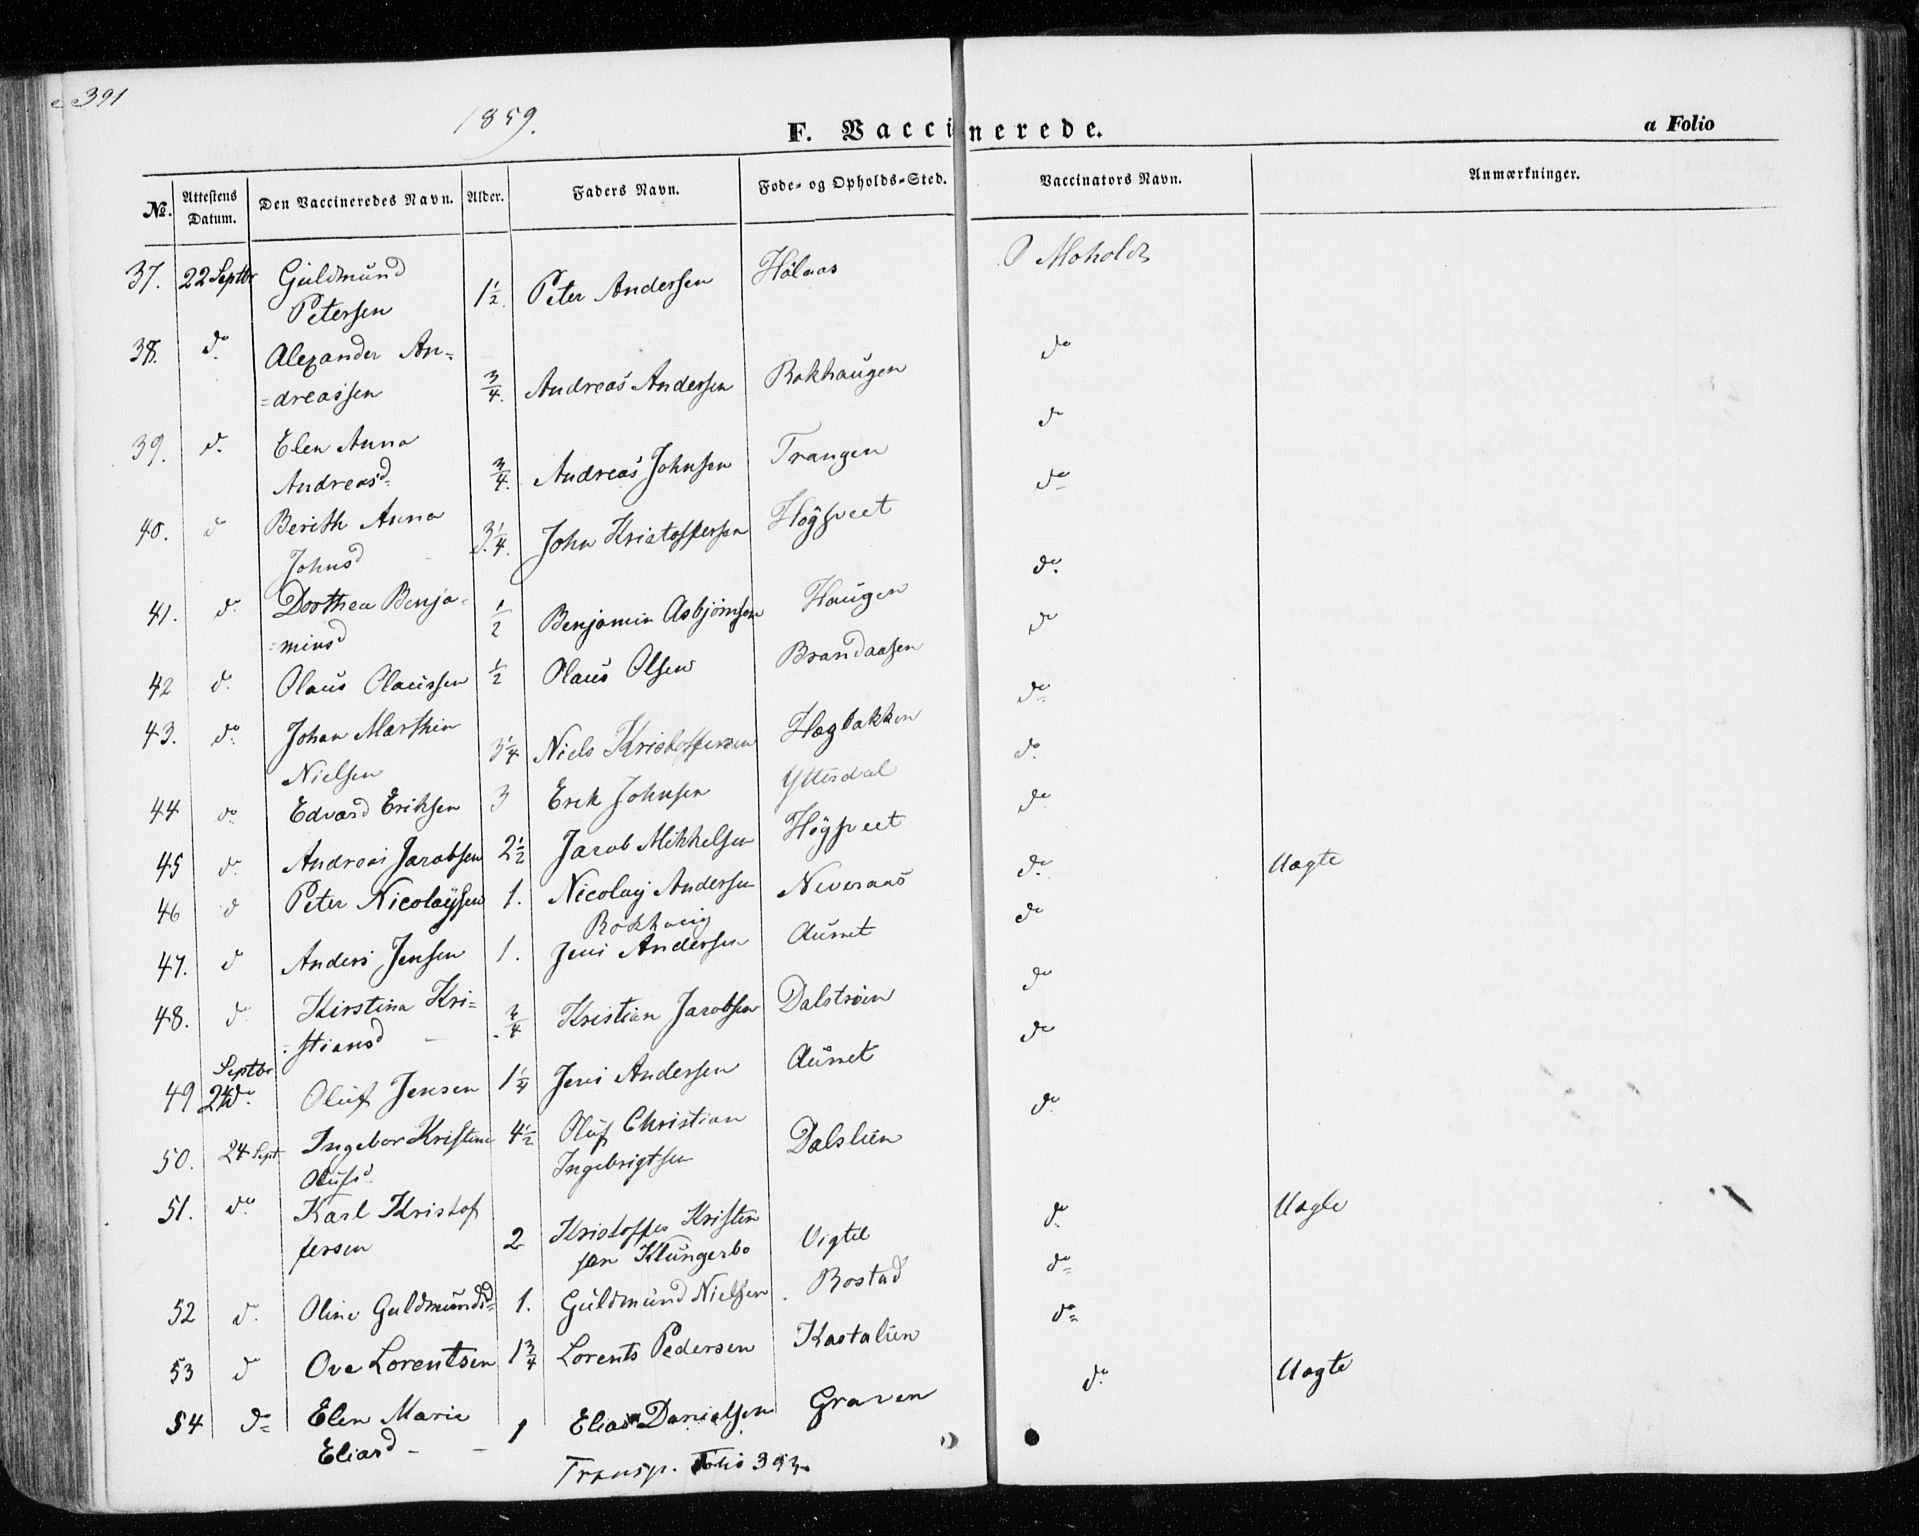 391
1859.
F. Vaccinerede.
a Folio
No. Attestens Datum. Den Vaccineredes Navn. Alder. Faders Navn. Føde- og Opholds-Sted. Vaccinators Navn. Anmærkninger.
37. 22 Septbr Guldmund 1½. Peter Andersen Hølaas O Moholdt
Petersen
38. do Alexander An=
=dreassen ¾. Andreas Andersen Rokhaugen do
39. d. Elen Anna
Andreasd ¾. Andreas Johnsen Trangen do
40. d Berith Anna 3¼. John Kristoffersen Høgsveet do
Johnsd
41. do Dorthea Benja= ½ Benjamin Asbjørnsen Haugen do
=minsd
42 d. Olaus Olaussen ½ Olaus Olsen Brandaasen do
43. do Johan Marthin 3¼ Niels Kristoffersen Hægbakken do
Nielsen
44 do Edvard Eriksen 3 Erik Johnsen Yttesdal do
45 do Andreas Jacobsen 2½ Jacob Mikkelsen Høgsveet do
46 d Peter Nicolaysen 1. Nicolay Andersen Neveraas do Uægte
Rokhaug
47. d Anders Jensen 1. Jens Andersen Aunet do
48. d. Kirstina Kri= ¾ Kristian Jacobsen Dalstrøen do
=stiansd
Septbr
49 24 do Oluf Jensen 1¼ Jens Andersen Aunet do
50. 24 Sept Ingebor Kristine 4½ Oluf Christian Dalslien do
Olufsd Ingebrigtsen
51. do Karl Kristof 2 Kristoffer Kristen Vigtil do Uægte
fersen sen Klungerbo
52 d. Oline Guldmundsd 1. Guldmund Nielsen Rostad do
53 d Ove Lorentsen 1¾ Lorents Pedersen Kastalien do
54 do Elen Marie 1 Elias Danielsen Graven do Uægte
Eliasd
Transp. Folio 393.